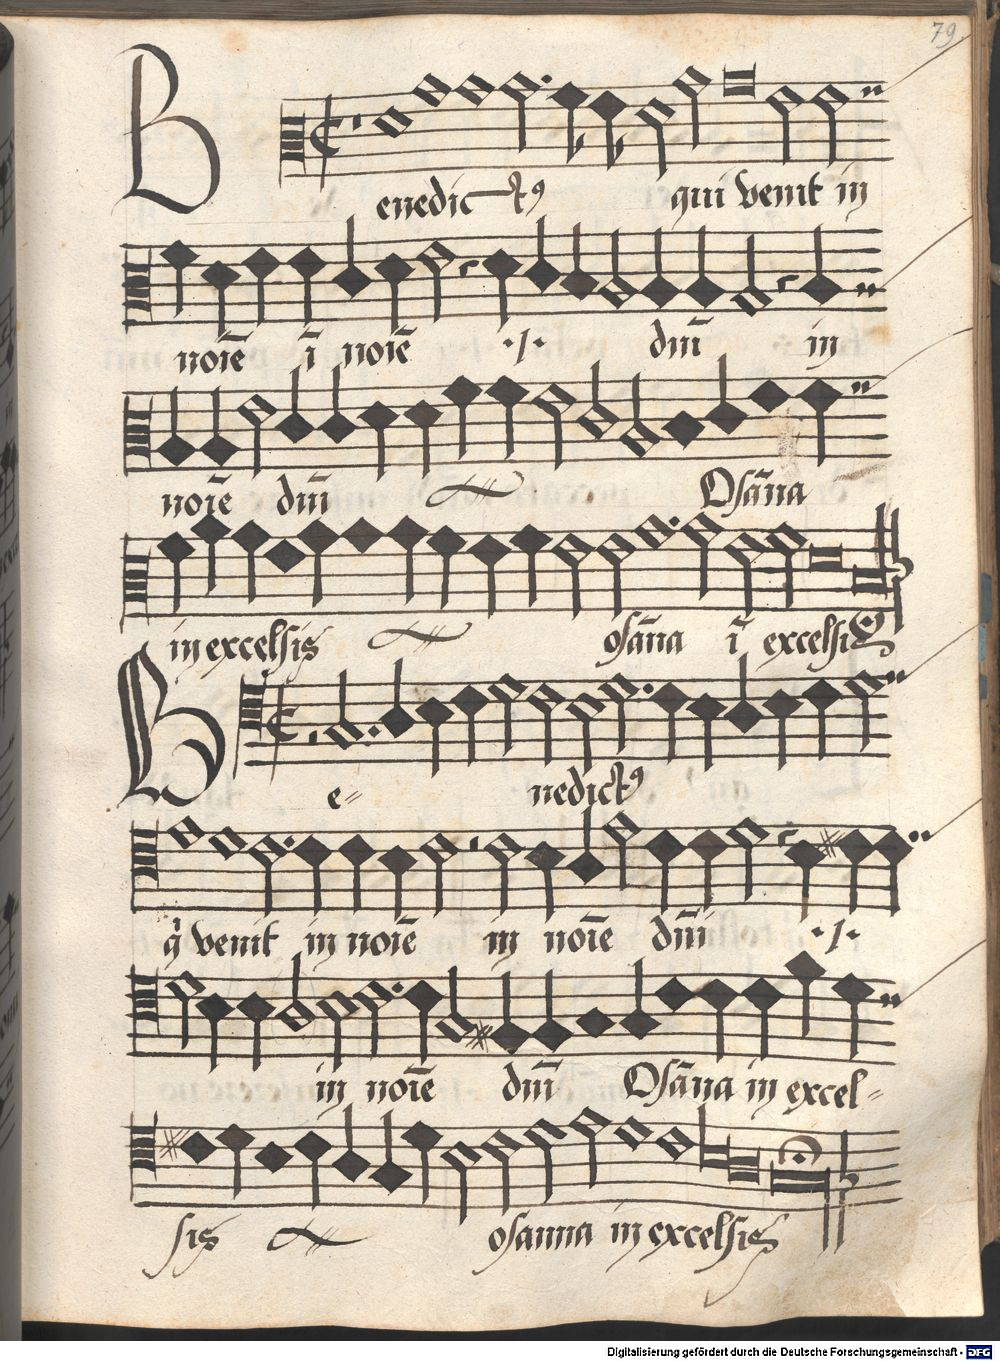 79.
Benedictꝰ qui venit in
noīe ī noīe ·/· dn̄i in
noīe dn̄i Osāna
in excelsis osāna ī excelsis
Be= nedictꝰ
q̇ venit in noīe in noīe dn̄i ·/·
in noīe dn̄i Osāna in excel=
sis osanna in excelsis
Digitalisierung gefördert durch die Deutsche Forschungsgemeinschaft - DFG